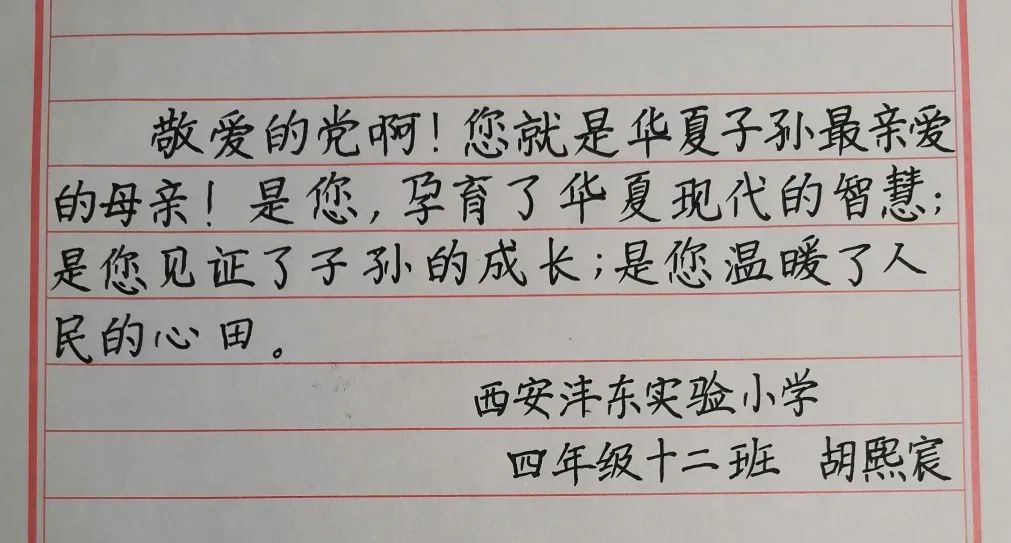 敬爱的党啊！您就是华夏子孙最亲爱
的母亲！是您，孕育了华夏现代的智慧；
是您见证了子孙的成长；是您温暖了人
民的心田。
西安沣东实验小学
四年级十二班 胡熙宸